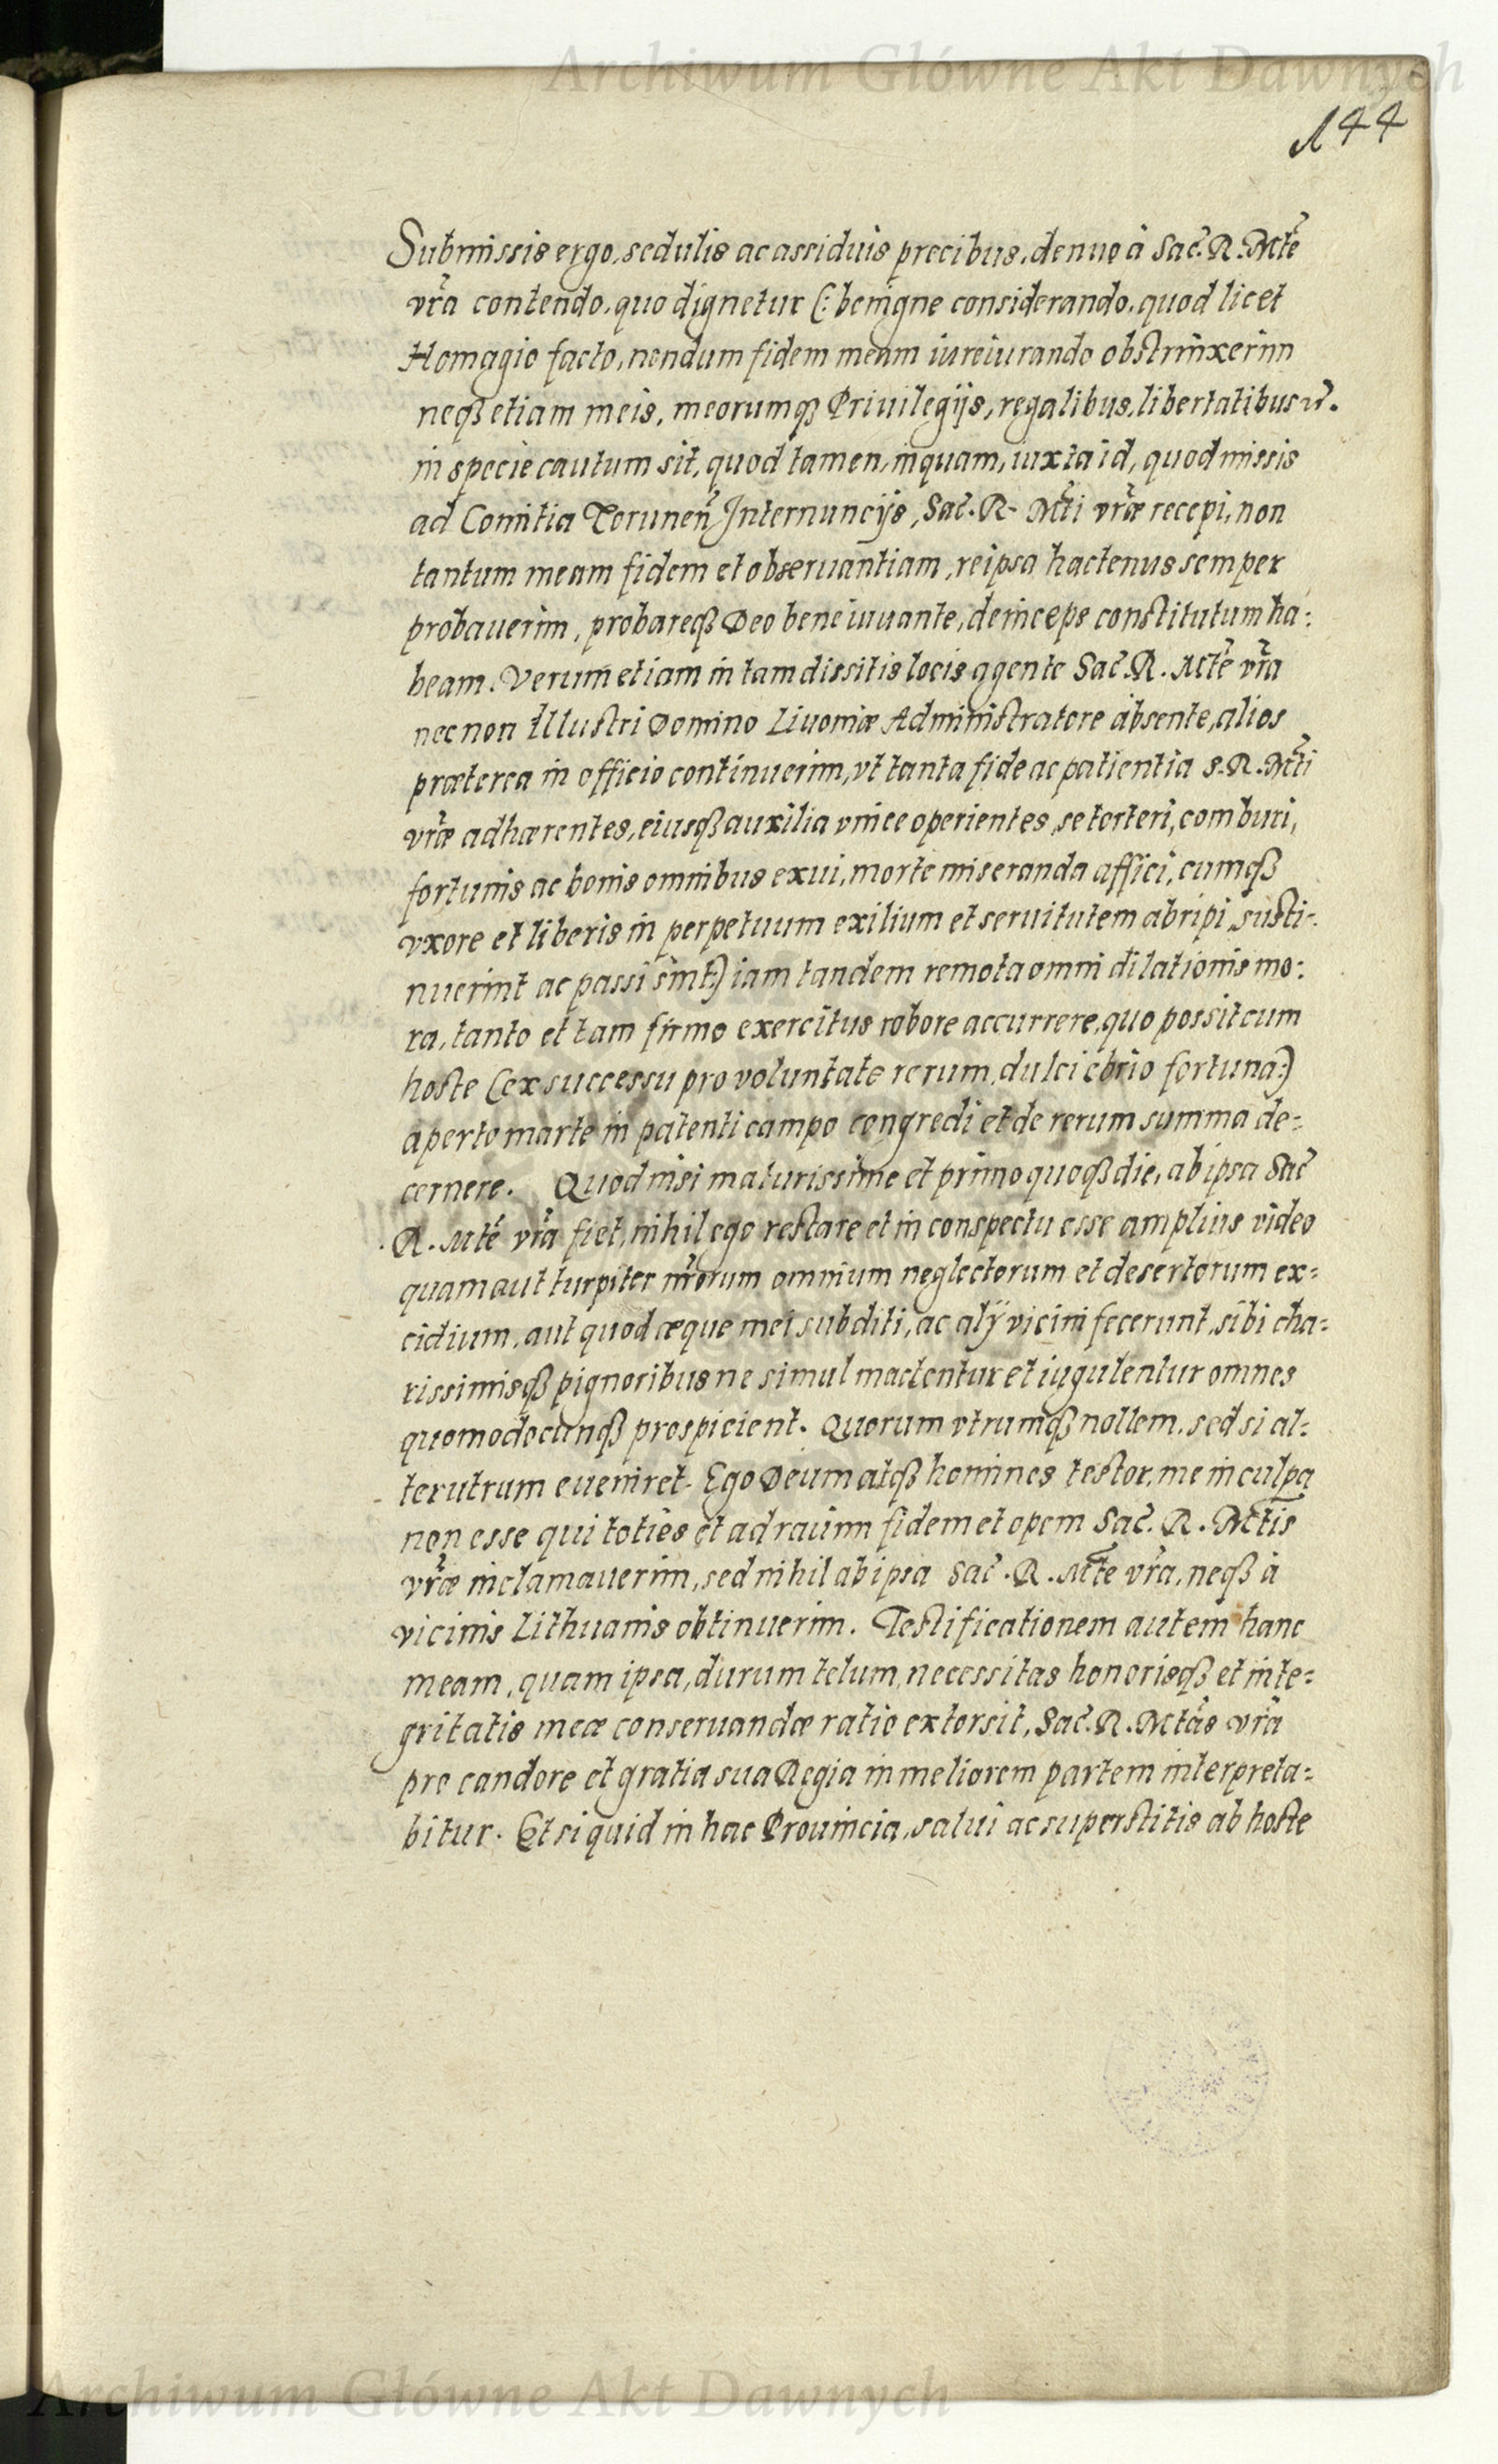 Archiwum Główne Akt Dawnych
144
Submissis ergo, sedulis ac assiduis precibus, denuo à Sac. R. Mte
vra contendo, quo dignetur (: benigne considerando, quod licet
Homagio facto, nondum fidem meam iureiurando obstrinxerim
neqß etiam meis, meorumqß Priuilegijs, regalibus, libertatibus
in specie cautum sit, quod tamen, inquam, iuxta id, quod missis
ad Comitia Torunen Internuncijs, Sac. R. Mti vræ recepi, non
tantum meam fidem et obseruantiam, reipsa hactenus semper
probauerim, probareqß Deo bene iuuante, deinceps constitutum ha:
beam. Verum etiam in tam dissitis locis agente Sac. R. Mte vra
nec non Illustri Domino Liuoniæ Administratore absente, alios
præterea in officio continuerim, vt tanta fide ac patientia S. R. Mti
vræ adhærentes, eiusqß auxilia vnice operientes, se torteri, comburi,
fortunis ac bonis omnibus exui, morte miseranda affici, cumqß
vxore et liberis in perpetuum exilium et seruitutem abripi, susti-
nuerint ac passi sint:) iam tandem remota omni dilationis mo:
ra, tanto et tam firmo exercitus robore accurrere, quo possit cum
hoste (ex successu pro voluntate rerum, dulci ebrio fortuna:)
aperto marte in patenti campo congredi et de rerum summa de=
cernere. Quod nisi maturissime et primo quoqß die, ab ipsa Sac
R. Mte vra fiet, nihil ego restare et in conspectu esse amplius video
quam aut turpiter nrorum omnium neglectorum et desertorum ex=
cidium, aut quod æque mei subditi, ac alij vicini fecerunt, sibi cha=
rissimisqß pignoribus ne simul mactentur et iugulentur omnes
quomodocunqß prospicient. Quorum vtrumqß nollem, sed si al=
terutrum eueniret. Ego Deum atqß homines testor, me in culpa
non esse qui toties et ad rauim fidem et opem Sac. R. Mtis
vræ inclamauerim, sed nihil ab ipsa Sac. R. Mte vra, neqß à
vicinis Lithuanis obtinuerim. Testificationem autem hanc
meam, quam ipsa, durum telum, necessitas honorisqß et inte=
gritatis meæ conseruandæ ratio extorsit, Sac. R. Mtas vra
pro candore et gratia sua Regia in meliorem partem interpreta=
bitur. Et si quid in hac Prouincia, salui ac superstitis ab hoste
Archiwum Główne Akt Dawnych